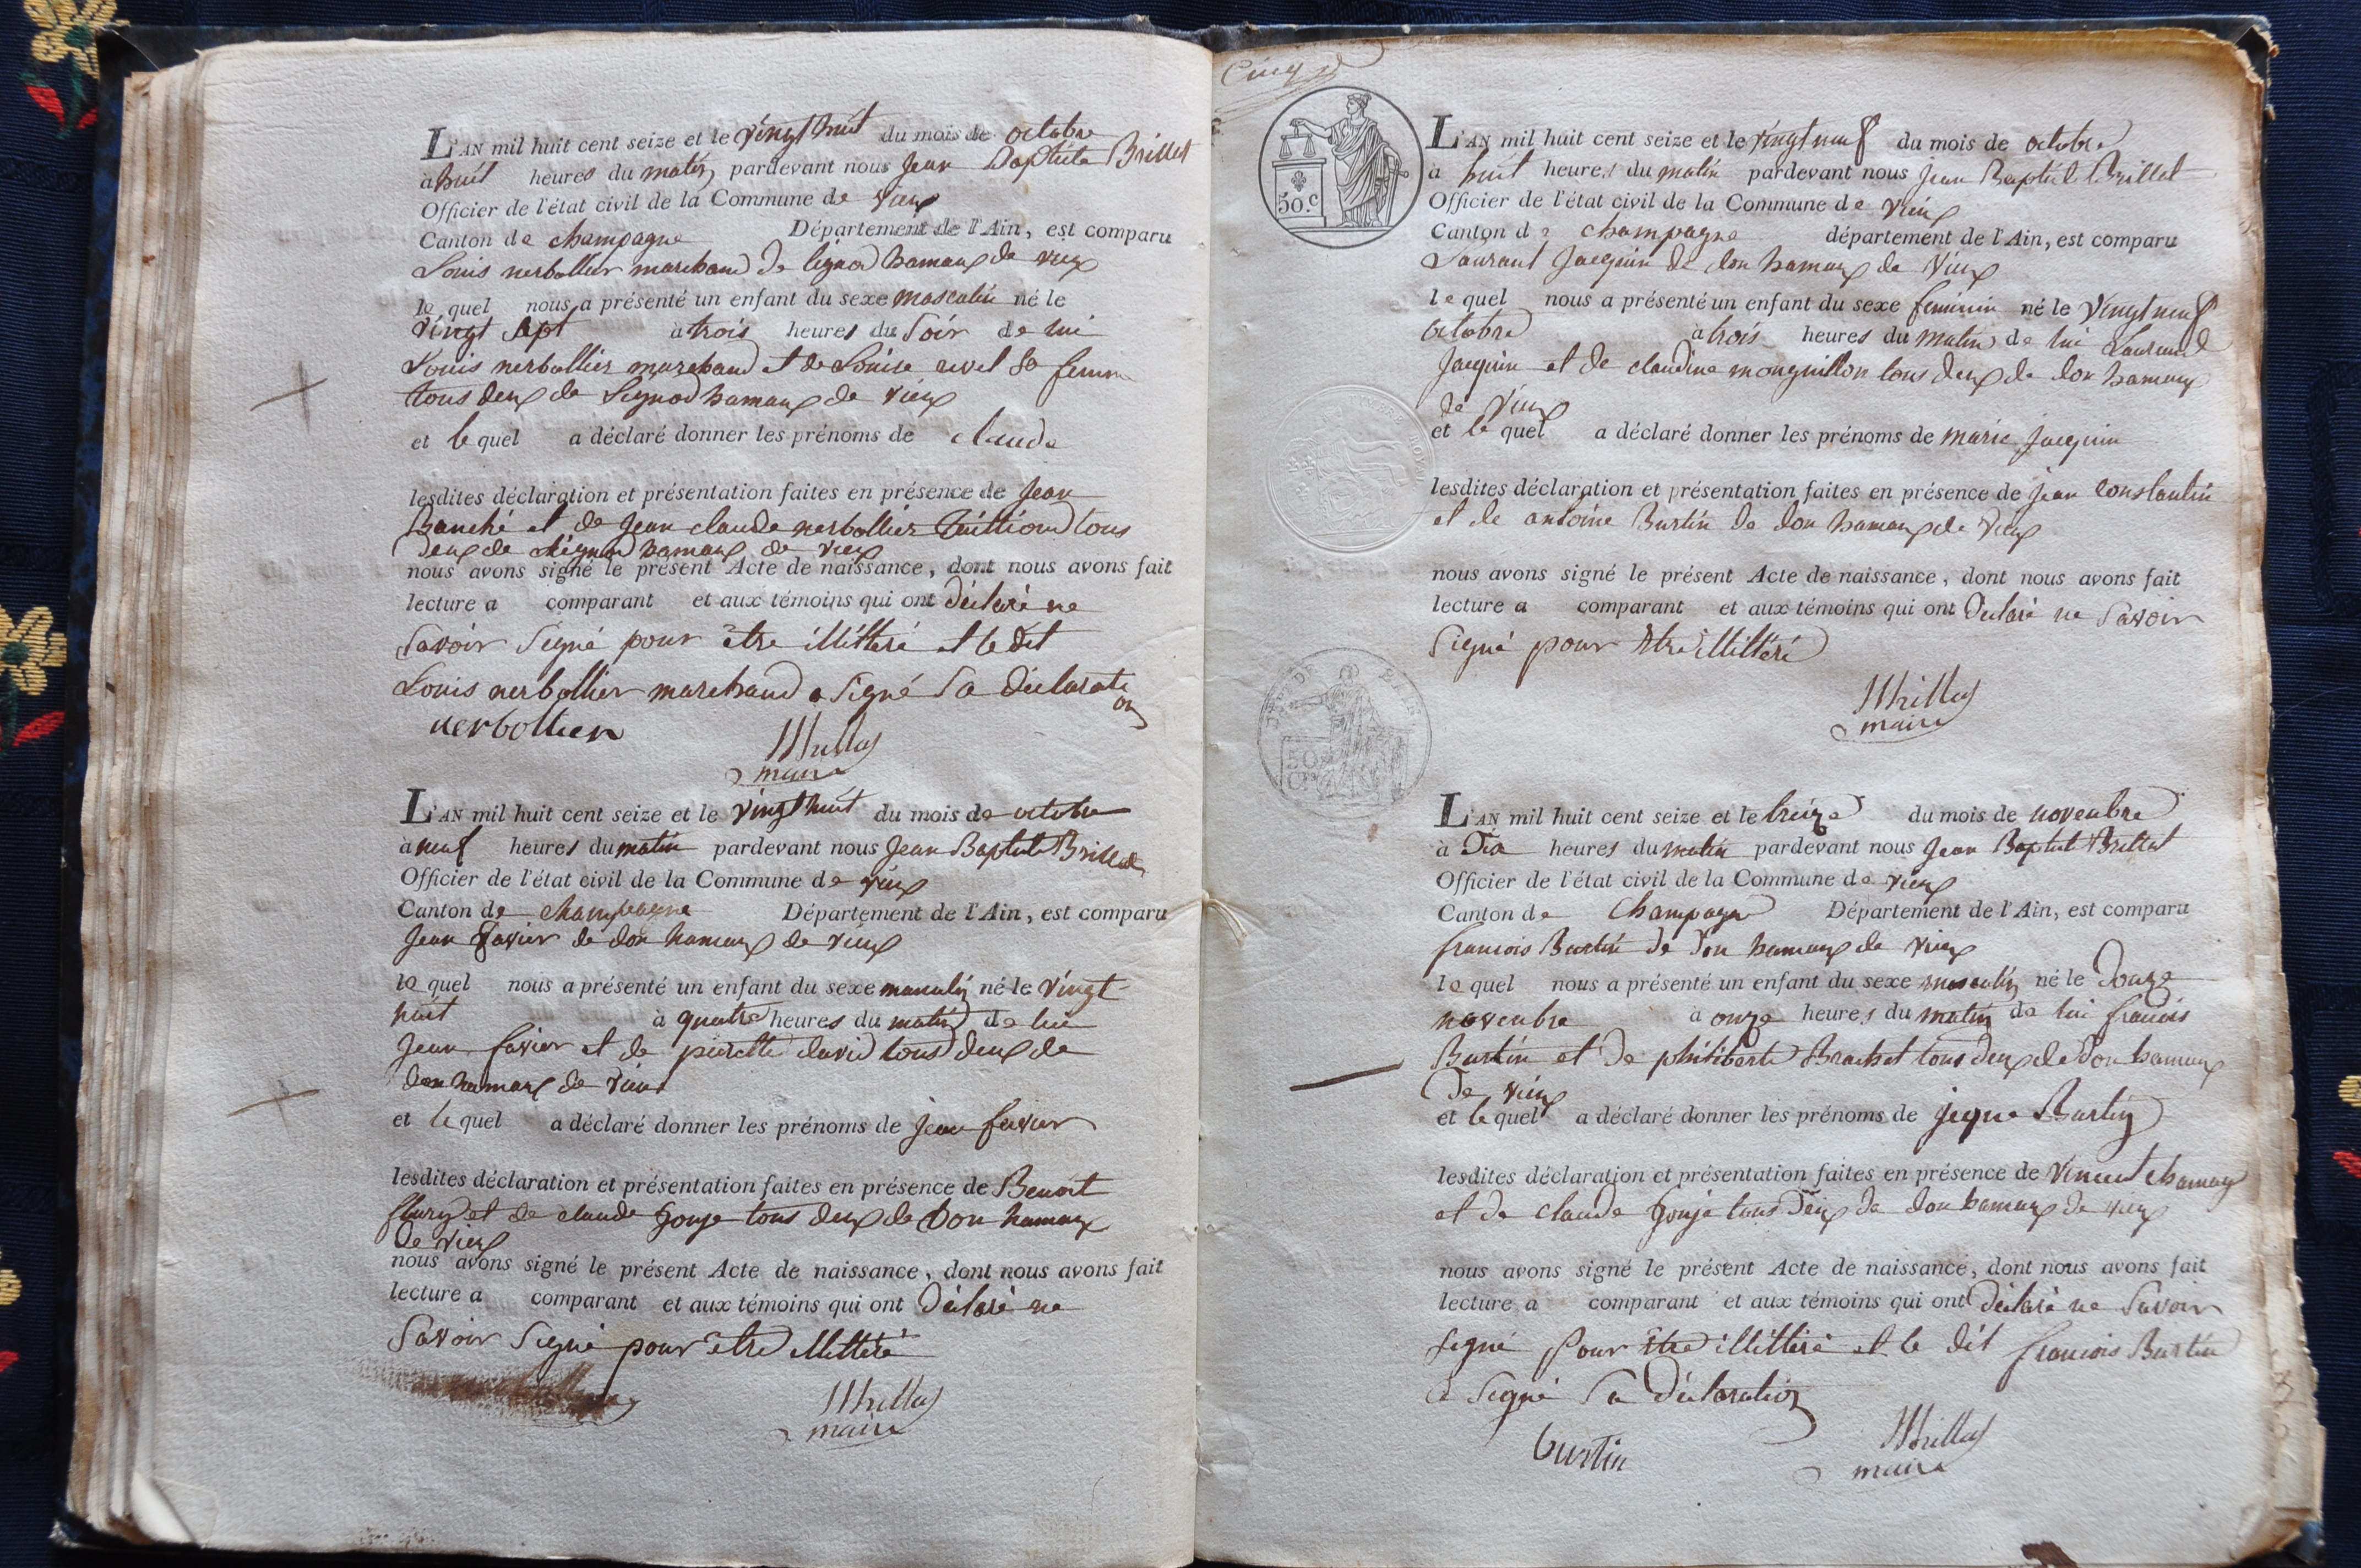 L'AN mil huit cent seize et le vingt huit du mois de octobre
à huit heures du matin pardevant nous Jean Baptiste Brillat
Officier de l'état civil de la Commune de vieux
Canton de champagne Département de l'Ain, est comparu
Louis nerbollier marchand de hamaux de vieux
le quel nous a présenté un enfant du sexe masculin né le
vingt sept à trois heures du soir de lui
Louis nerbollier marchand et de Louise sa femme
tous deux de hamaux de vieux
et le quel a déclaré donner les prénoms de claude
lesdites déclaration et présentation faites en présence de jean
Banché et de jean claude nerbollier tous
deux de hamaux de vieux
nous avons signé le présent Acte de naissance, dont nous avons fait
lecture a comparant et aux témoins qui ont déclaré ne
savoir signé pour être illittéré et le dit
Louis nerbollier marchand a signé sa déclarati
on
nerbollier
maire
L'AN mil huit cent seize et le vingt huit du mois de octobre
à neuf heures du matin pardevant nous Jean Baptiste Brillat
Officier de l'état civil de la Commune de vieux
Canton de champagne Département de l'Ain, est comparu
jean favier de don hamaux de vieux
le quel nous a présenté un enfant du sexe masculin né le vingt
huit à quatre heures du matin de lui
jean favier et de pierette david tous deux de
don hamaux de vieux
et le quel a déclaré donner les prénoms de jean favier
lesdites déclaration et présentation faites en présence de Benoit
fleury et de claude gonje tous deux de don hamaux
de vieux
nous avons signé le présent Acte de naissance, dont nous avons fait
lecture a comparant et aux témoins qui ont déclaré ne
savoir signé pour être illittéré
Brillat
maire
Cinq
50.c
L'AN mil huit cent seize et le vingt neuf du mois de octobre
à huit heures du matin pardevant nous jean Baptist Brillat
Officier de l'état civil de la Commune de vieux
Canton de champagne département de l'Ain, est comparu
Laurant Jacquin de don hamaux de vieux
le quel nous a présenté un enfant du sexe feminin né le vingt neuf
octobre à trois heures du matin de lui Laurand
Jacquin et de claudine monguillon tous deux de don hamaux
de vieux
et le quel a déclaré donner les prénoms de marie jacquin
lesdites déclaration et présentation faites en présence de jean constantin
et de antoine Burtin de don hamaux de vieux
nous avons signé le présent Acte de naissance, dont nous avons fait
lecture a comparant et aux témoins qui ont déclaré ne savoir
signé pour être illittéré
Brillat
maire
L'AN mil huit cent seize et le treize du mois de novenbre
à dix heures du matin pardevant nous jean Baptist Brillat
Officier de l'état civil de la Commune de vieux
Canton de champagne Département de l'Ain, est comparu
francois Burtin de don hamaux de vieux
le quel nous a présenté un enfant du sexe masculin né le douze
novenbre à onze heures du matin de lui francois
Burtin et de philiberte Brachet tous deux de don hamaux
de vieux
et le quel a déclaré donner les prénoms de Burtin
lesdites déclaration et présentation faites en présence de vincent
et de claude gonje tous deux de don hamaux de vieux
nous avons signé le présent Acte de naissance, dont nous avons fait
lecture a comparant et aux témoins qui ont déclaré ne savoir
signé pour être illittéré et le dit francois Burtin
a signé sa déclaration
burtin
Brillat
maire